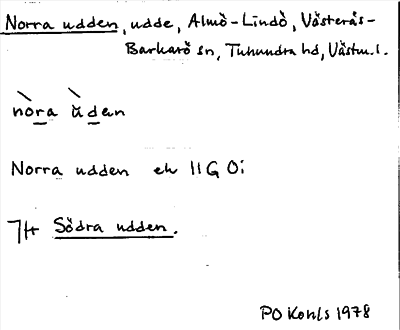 Norra udden, udde, Almö-Lindö, Västerås-
Barkarö sn, Tuhundra hd, Västm.l.
nòra ùdan
Norra udden ek 11G 0i
Jfr Södra udden.
PO Konls 1978